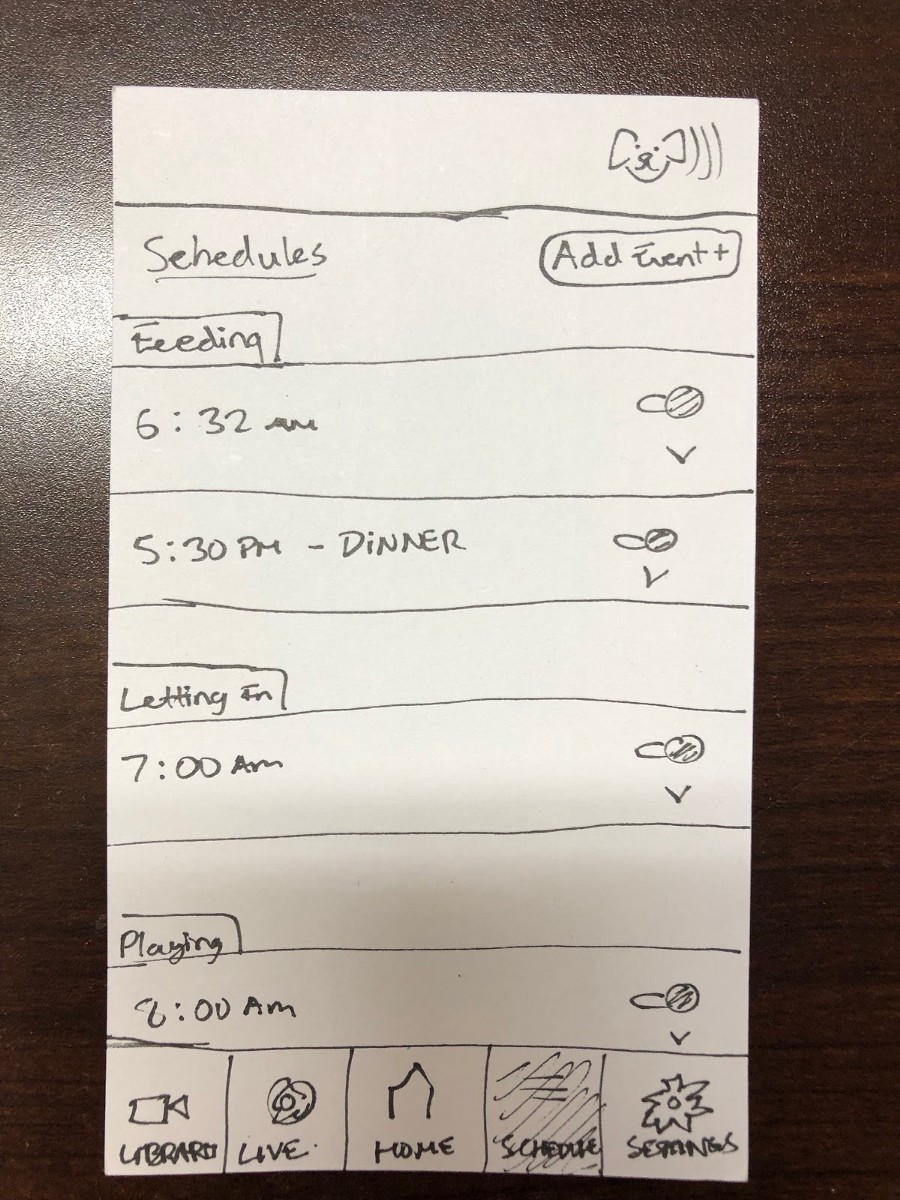 Schedules
Add Event+
Feeding
6:32 AM
5:30 PM - DiNNER
Letting In
7:00 Am
Playing
8:00 Am
LIBRARY
LIVE
HOME
SCHEDULE
SETTINGS